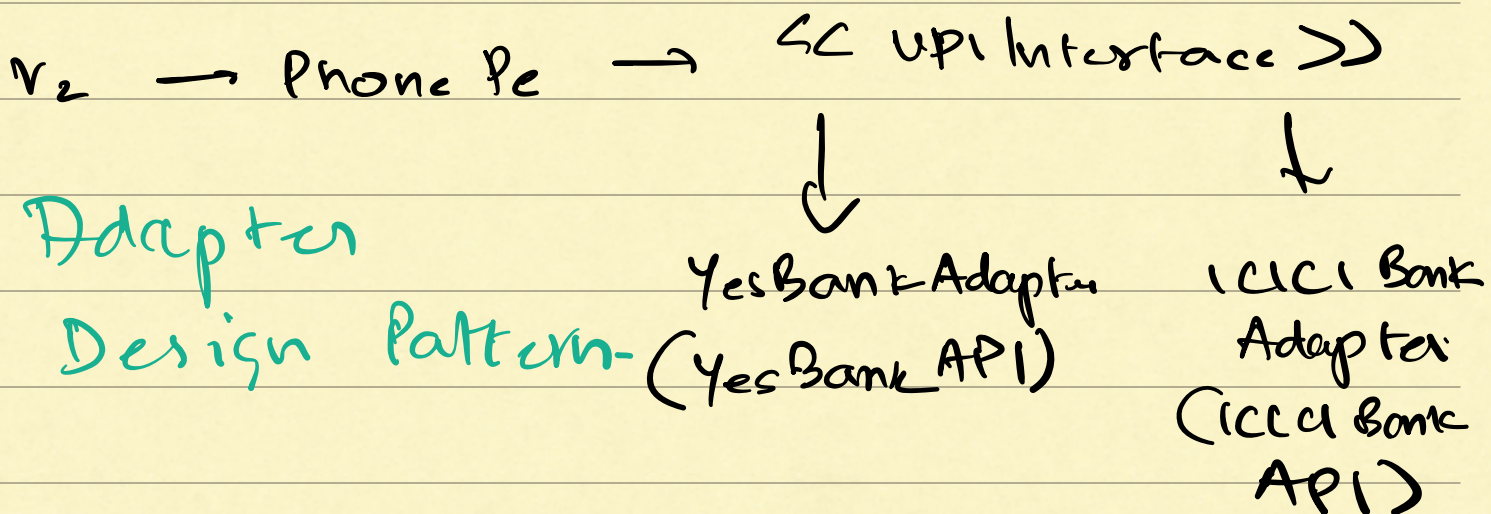 V2 → Phone Pe → << UPI Interface >>
Adapter
Design Pattern
YesBank Adapter
(YesBank API)
ICICI Bank
Adapter
(ICICI Bank
API)